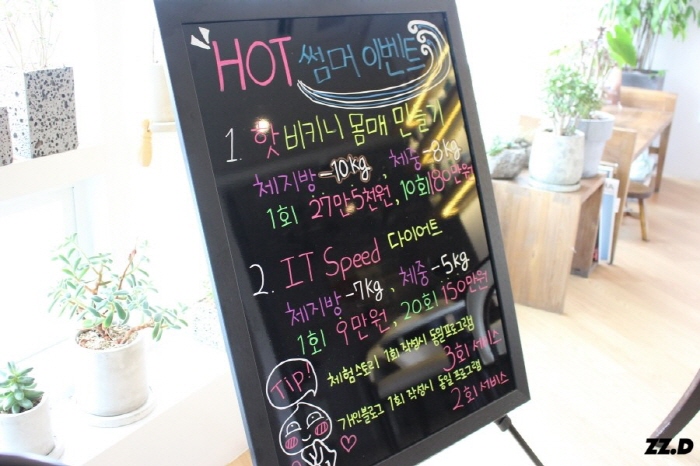 HOT 썸머 이벤트
1. 핫 비키니 몸매 만들기
체지방 -10kg, 체중 -8kg
1회 27만 5천원, 10회 180만원
2. IT Speed 다이어트
체지방 -7kg, 체중 -5kg
1회 9만원, 20회 150만원
Tip!
체험스토리 1회 작성시 동일프로그램
3회 서비스
개인블로그 1회 작성시 동일 프로그램
2회 서비스
ZZ.D